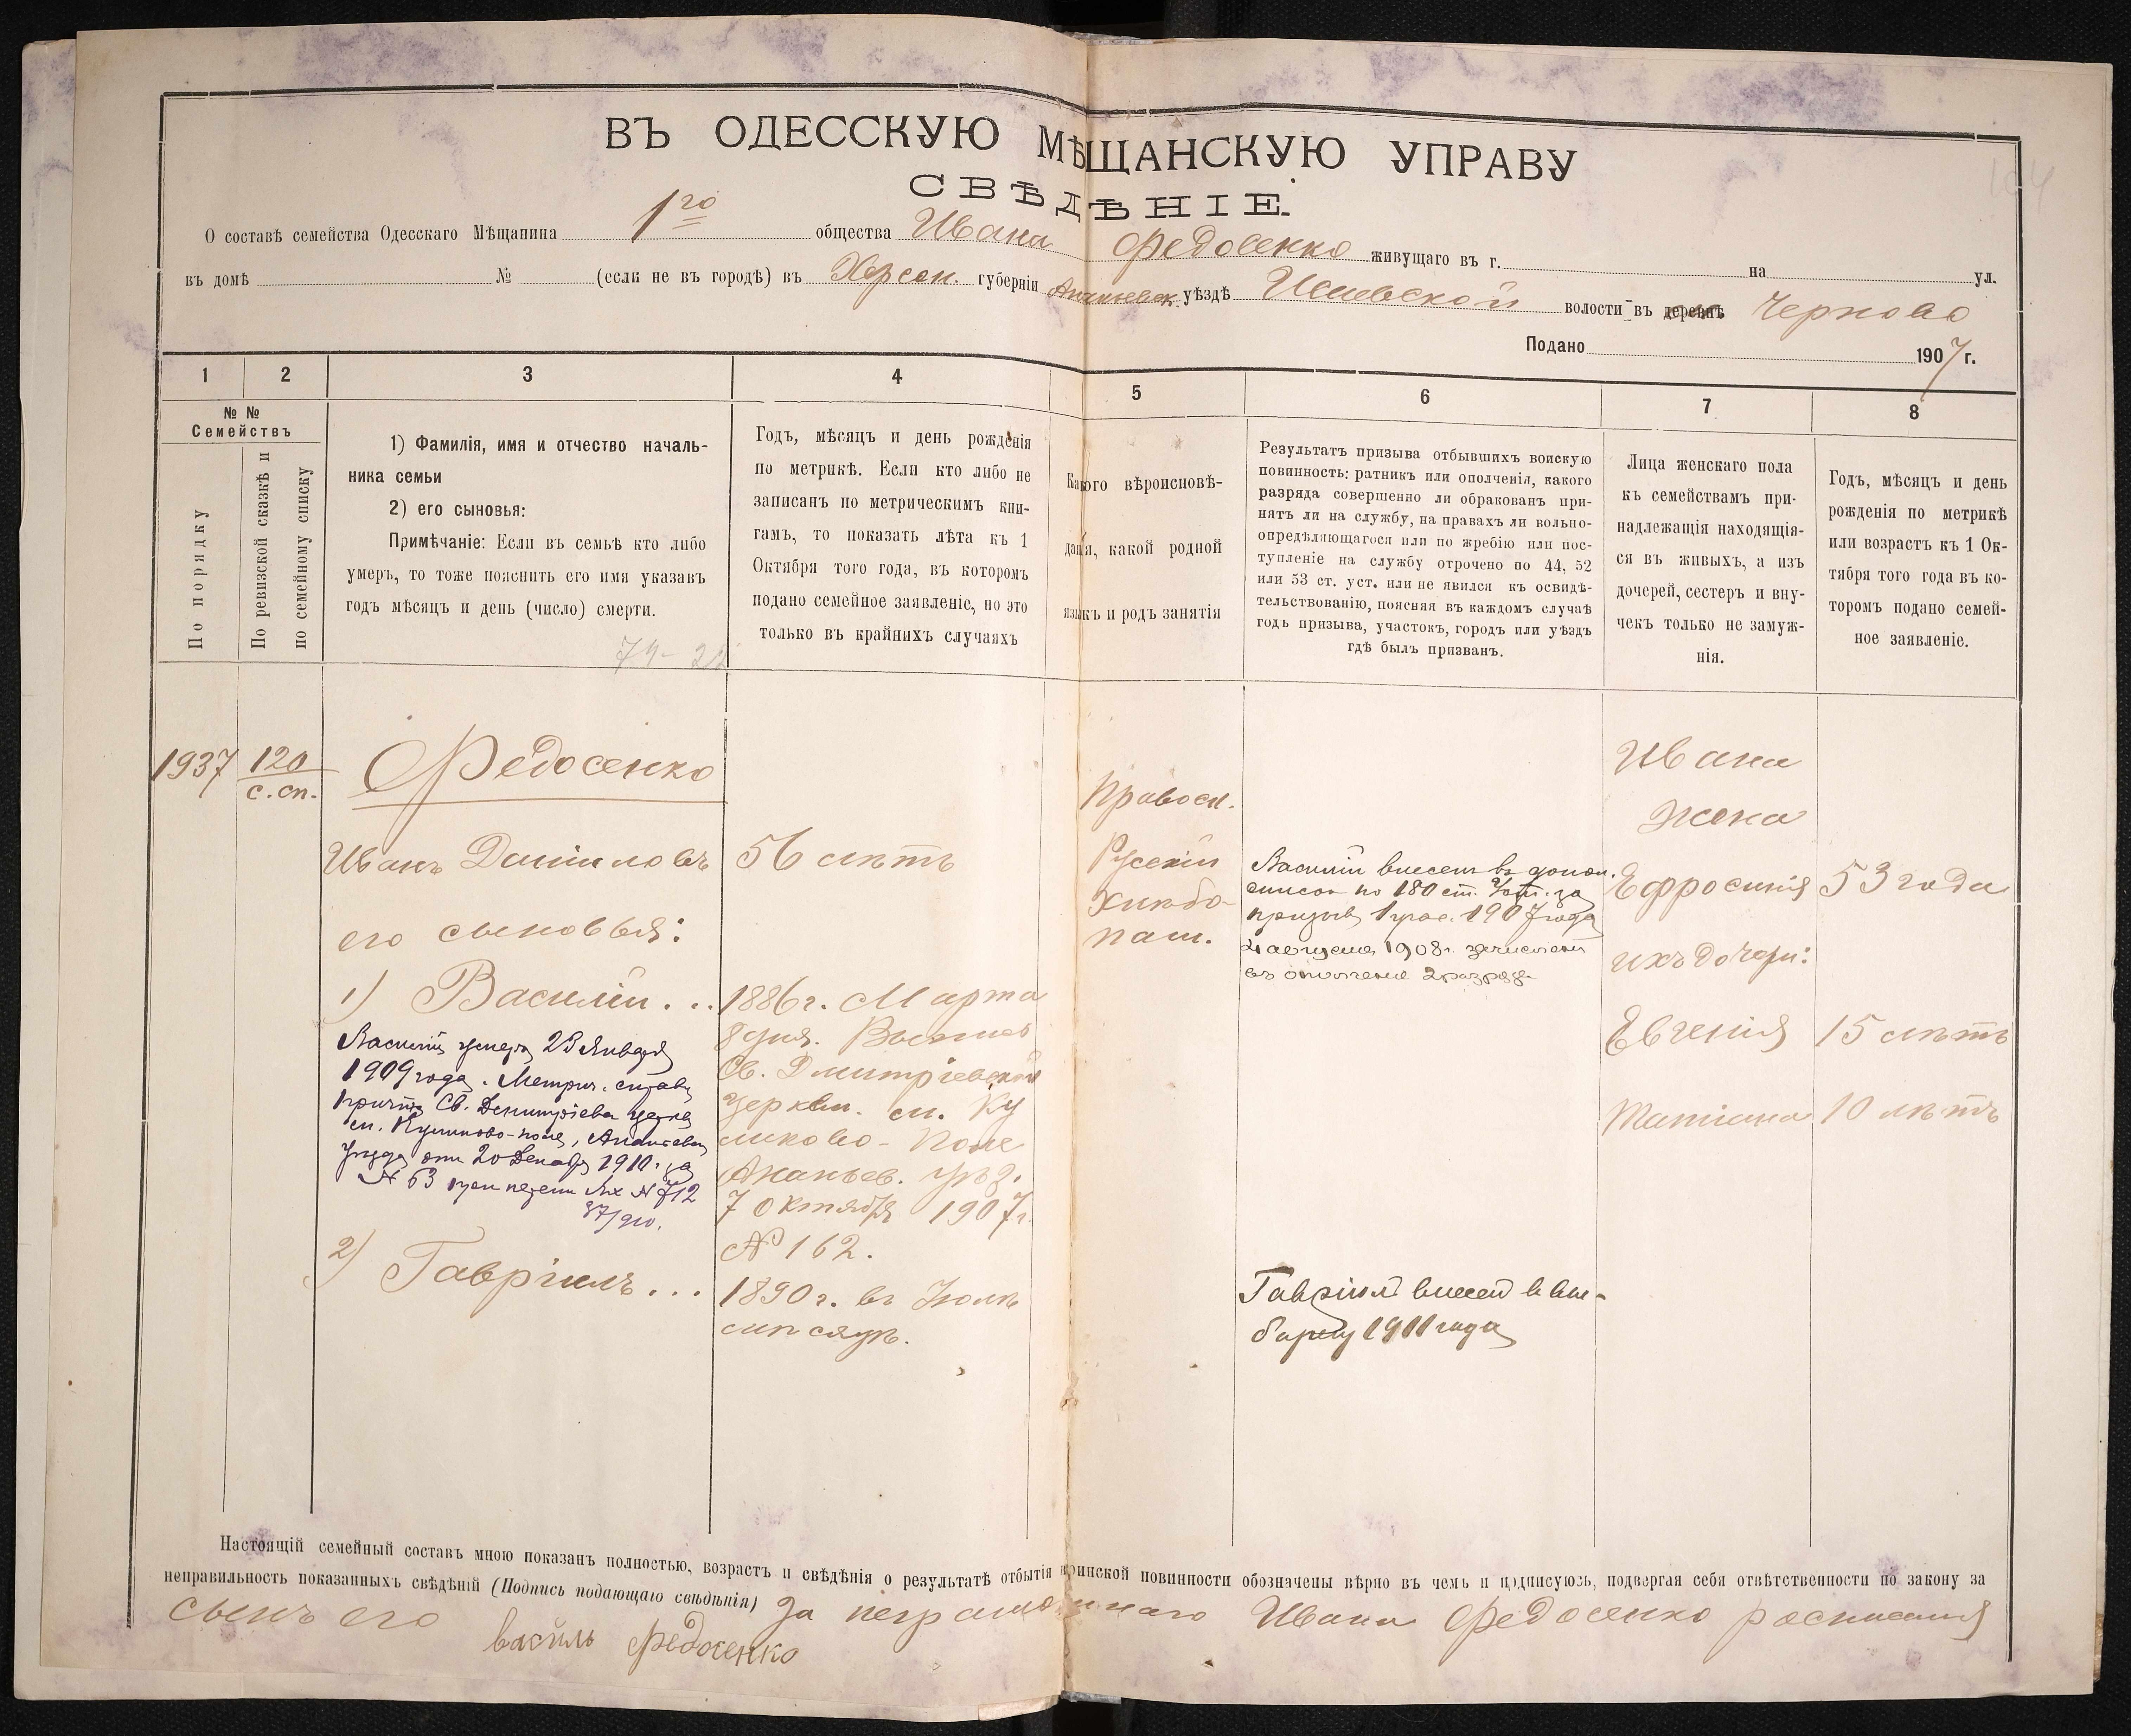 ВЪ ОДЕССКУЮ МѢЩАНСКУЮ УПРАВУ
СВѢДѢНІЕ.
О составѣ семейства Одесскаго Мѣщанина 1го общества Ивана Федосенко живущаго въ г. на ул.
въ домѣ № (если не въ городѣ) въ Херсон. губерніи Ананьевск. уѣздѣ волости въ деревнѣ Черново
Подано 1907 г.
1 2 3 4 5 6 7 8
№ №
Семействъ
По порядку
По ревизской сказкѣ и
по семейному списку
1) Фамилія, имя и отчество началь-
ника семьи
2) его сыновья:
Примѣчаніе: Если въ семьѣ кто либо
умеръ, то тоже пояснить его имя указавъ
годъ мѣсяцъ и день (число) смерти.
Годъ, мѣсяцъ и день рожденія
по метрикѣ. Если кто либо не
записанъ по метрическимъ кни-
гамъ, то показать лѣта къ 1
Октября того года, въ которомъ
подано семейное заявленіе, но это
только въ крайнихъ случаяхъ
Какого вѣроисповѣ-
данія, какой родной
языкъ и родъ занятія
Результатъ призыва отбывшихъ воискую
повинность: ратникъ или ополченія, какого
разряда совершенно ли обракованъ при-
нятъ ли на службу, на правахъ ли вольно-
опредѣляющагося или по жребію или пос-
тупленіе на службу отрочено по 44, 52
или 53 ст. уст. или не явился къ освидѣ-
тельствованію, поясняя въ каждомъ случаѣ
годъ призыва, участокъ, городъ или уѣздъ
гдѣ былъ призванъ.
Лица женскаго пола
къ семействамъ при-
надлежащія находящія-
ся въ живыхъ, а изъ
дочерей, сестеръ и вну-
чекъ только не замуж-
нія.
Годъ, мѣсяцъ и день
рожденія по метрикѣ
или возрастъ къ 1 Ок-
тября того года въ ко-
торомъ подано семей-
ное заявленіе.
1937
120
с.сп.
Федосенко
Иванъ Даниловъ
его сыновья:
1) Василій...
Василій умеръ 23 Января
1909 года. Метрич. справк
причта Св. Димитріевск церкв
сл. Куликово-поле, Ананьевск
уѣзда отъ 20 Декабр 1910 г. за
№ 63 при Вх № 712
2) Гавріилъ...
56 лѣтъ
1886 г. Марта
8 дня. Выпись
Св. Димтріевской
церкви. сл. Ку
ликово-Поле
Ананьев. уѣз.
7 Октября 1907 г.
№ 162.
1890 г. въ Іюлѣ
мѣсяцѣ.
Правосл.
Русскій
Хлѣбо-
паш.
Василій внесенъ въ допол.
список по 180 ст. уст. за
призыв 1907 года
августа 1908 г. зачисленъ
въ ополченіе 2 разряда
Гавріилъ внесен в вы-
борку 1911 года
Ивана
жена
Ефросинія
ихъ дочери:
Евгенія
Татіана
53 года
15 лѣтъ
10 лѣтъ
Настоящій семейный составъ мною показанъ полностью, возрастъ и свѣдѣнія о результатѣ отбытія воинской повинности обозначены вѣрно въ чемъ и подписуюсь, подвергая себя отвѣтственности по закону за
неправильность показанныхъ свѣдѣній (Подпись подающаго свѣдѣнія) За неграмотнаго Ивана Федосенко росписался
сынъ его
василь федосенко